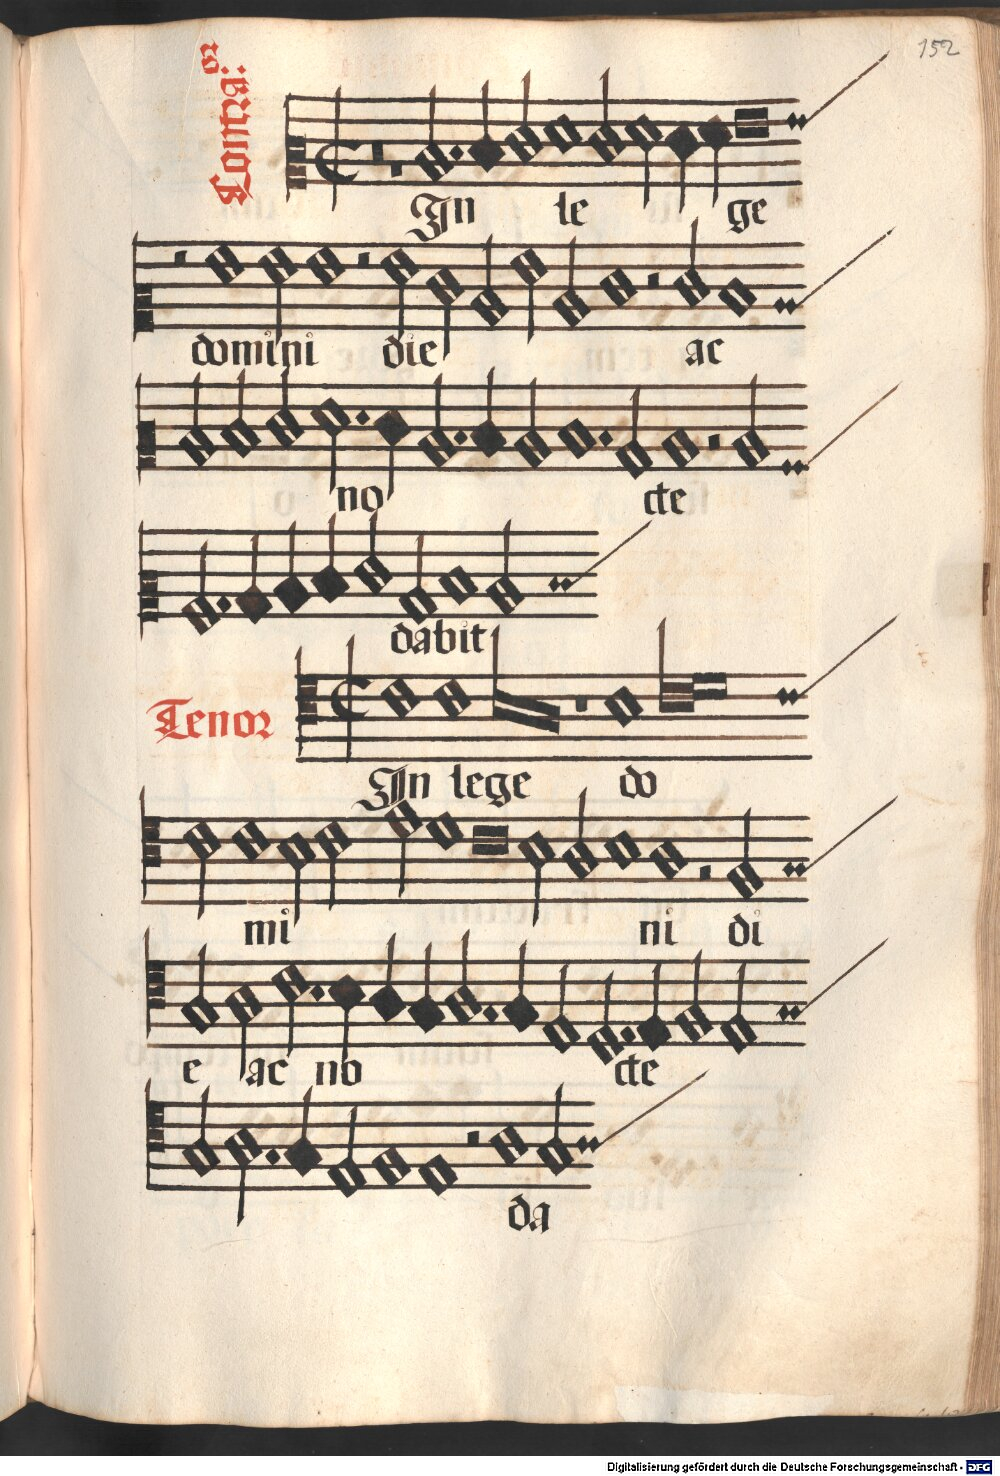 152
Contra:
In le ge
domini die ac
no cte
dabit
Tenor
In lege do
mi ni di
e ac no cte
da
Digitalisierung gefördert durch die Deutsche Forschungsgemeinschaft - DFG